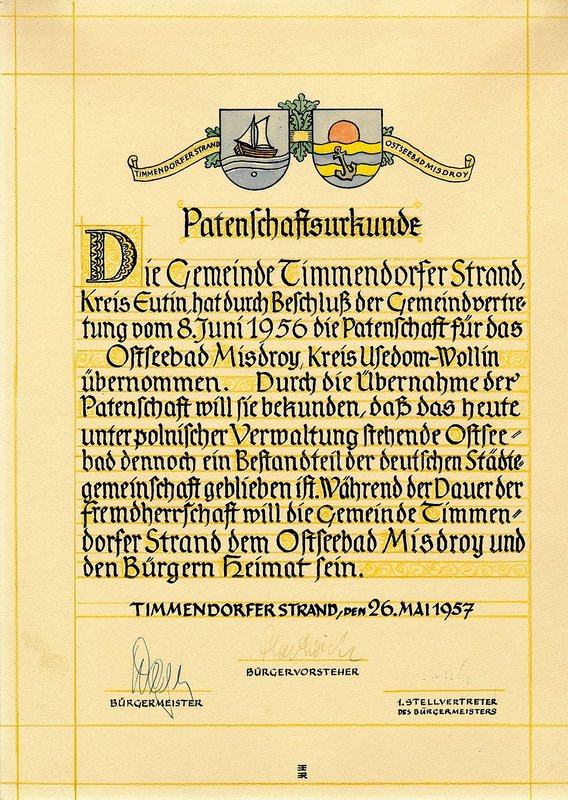 TIMMENDORFER STRAND
OSTSEEBAD MISDROY
Patenschaftsurkunde
Die Gemeinde Timmendorfer Strand,
Kreis Eutin, hat durch Beschluß der Gemeindvertre-
tung vom 8. Juni 1956 die Patenschaft für das
Ostseebad Misdroy, Kreis Usedom-Wollin
übernommen. Durch die Übernahme der
Patenschaft will sie bekunden, daß das heute
unter polnischer Verwaltung stehende Ostsee-
bad dennoch ein Bestandteil der deutschen Städte-
gemeinschaft geblieben ist. Während der Dauer der
Fremdherrschaft will die Gemeinde Timmen-
dorfer Strand dem Ostseebad Misdroy und
den Bürgern Heimat sein.
TIMMENDORFER STRAND, DEN 26. MAI 1957
BÜRGERVORSTEHER
BÜRGERMEISTER
1. STELLVERTRETER
DES BÜRGERMEISTERS